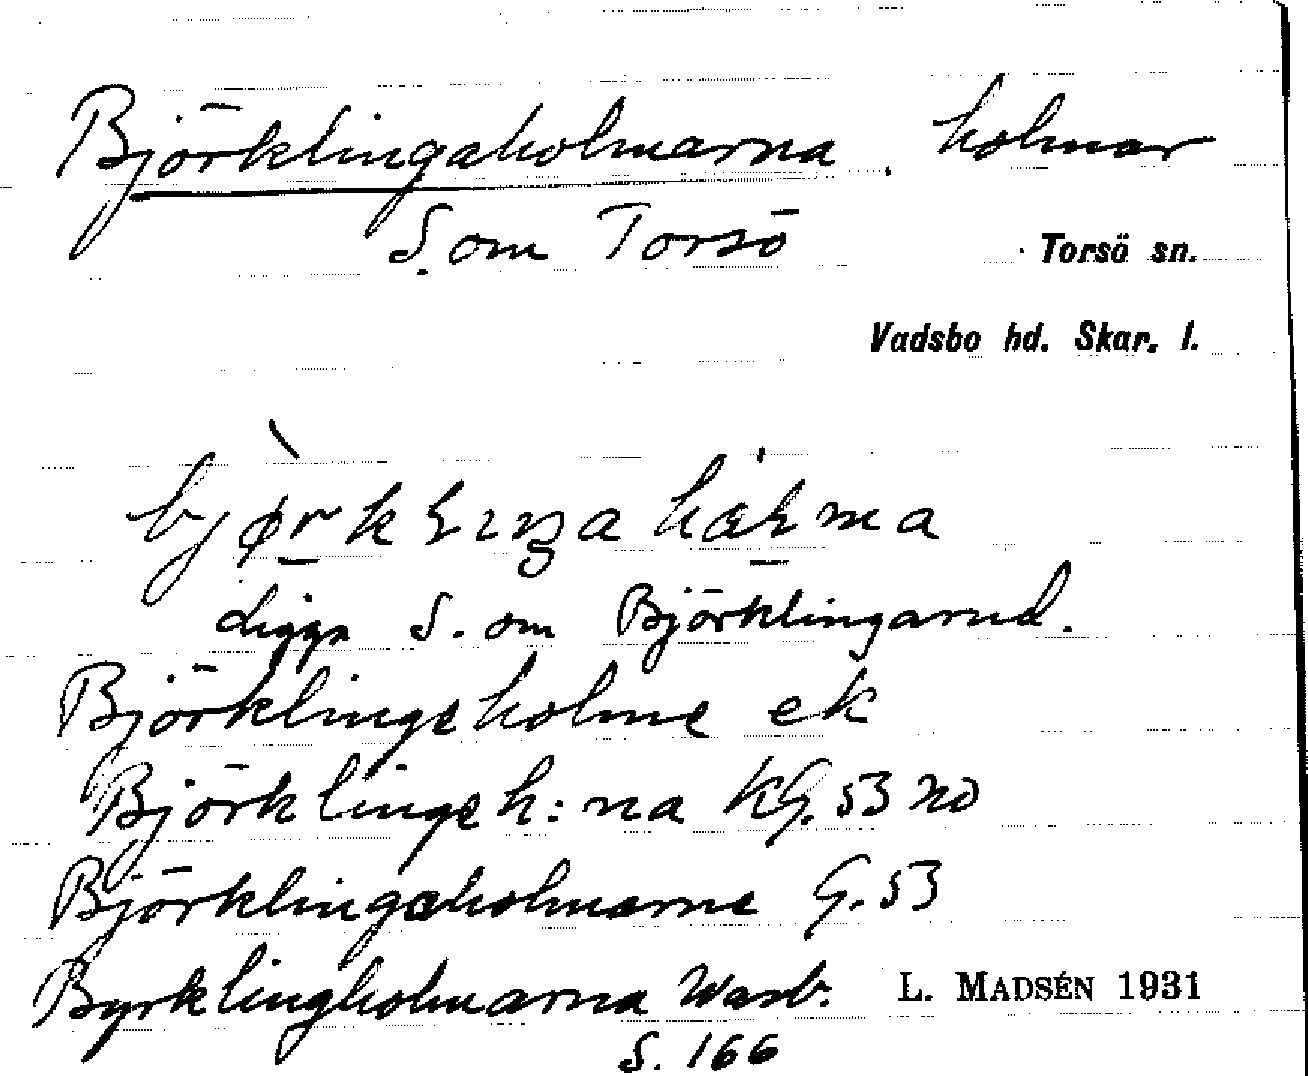 Björklingaholmarna, holmar
S. om Torsö
Torsö sn.
Vadsbo hd. Skar. l.
Ligga S. om Björklingarud.
Björklingeholme ek
Björklingeh:na KG. 53 no
Björklingaholmarne G. 53
Byrklingholmarna Warb.
L. MADSÉN 1931
S. 166